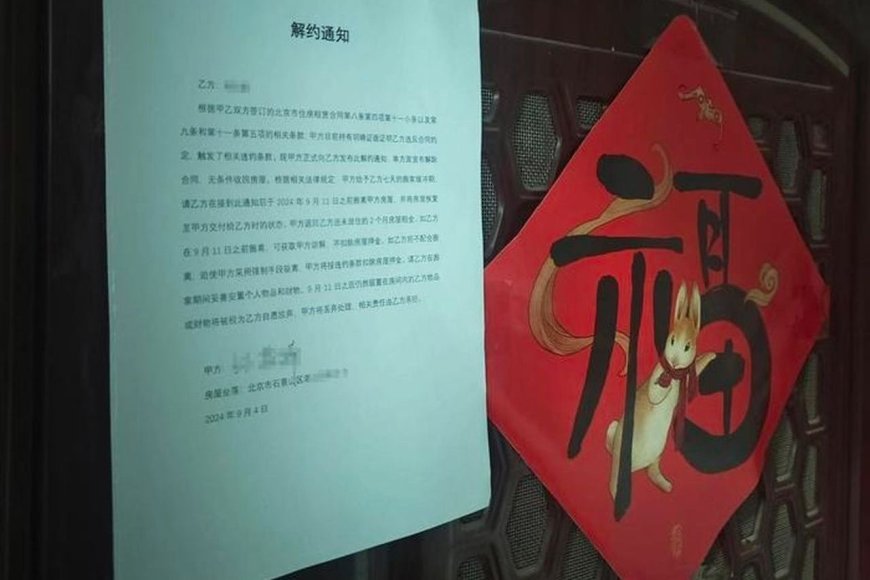 解约通知
乙方:
根据甲乙双方签订的北京市住房租赁合同第八条第四项第十一小条以及第
九条和第十一条第五项的相关条款,甲方目前持有明确证据证明乙方违反合同约
定,触发了相关违约条款,现甲方正式向乙方发布此解约通知,单方面宣布解除
合同,无条件收回房屋。根据相关法律规定,甲方给予乙方七天的搬家缓冲期,
请乙方在接到此通知后于 2024 年 9 月 11 日之前搬离甲方房屋,并将房屋恢复
至甲方交付给乙方时的状态,甲方退回乙方还未居住的 2 个月房屋租金,如乙方
在 9 月 11 日之前搬离,可获取甲方谅解,不扣除房屋押金,如乙方拒不配合搬
离,迫使甲方采用强制手段驱离,甲方将按违约条款扣除房屋押金。请乙方在搬
家期间妥善安置个人物品和财物,9 月 11 日之后仍然留置在房间内的乙方物品
或财物将被视为乙方自愿放弃,甲方将丢弃处理,相关责任由乙方承担。
甲方:
房屋坐落:北京市石景山区
2024 年 9 月 4 日
福